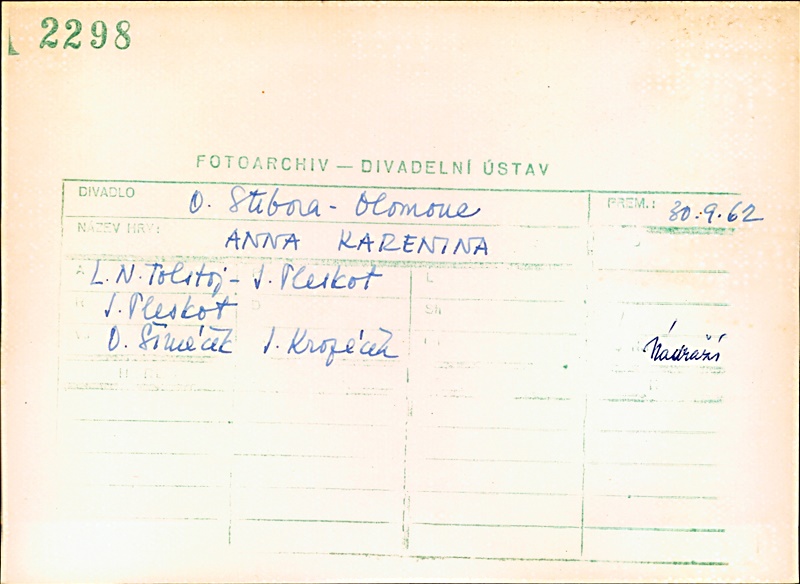 2298
FOTOARCHIV — DIVADELNÍ ÚSTAV
DIVADLO O. Stibora - Olomouc PREM.: 30.9.62
NÁZEV HRY: ANNA KARENINA
L.N.Tolstoj - J. Pleskot
J. Pleskot
O. Šimáček J. Kropáček Nádraží